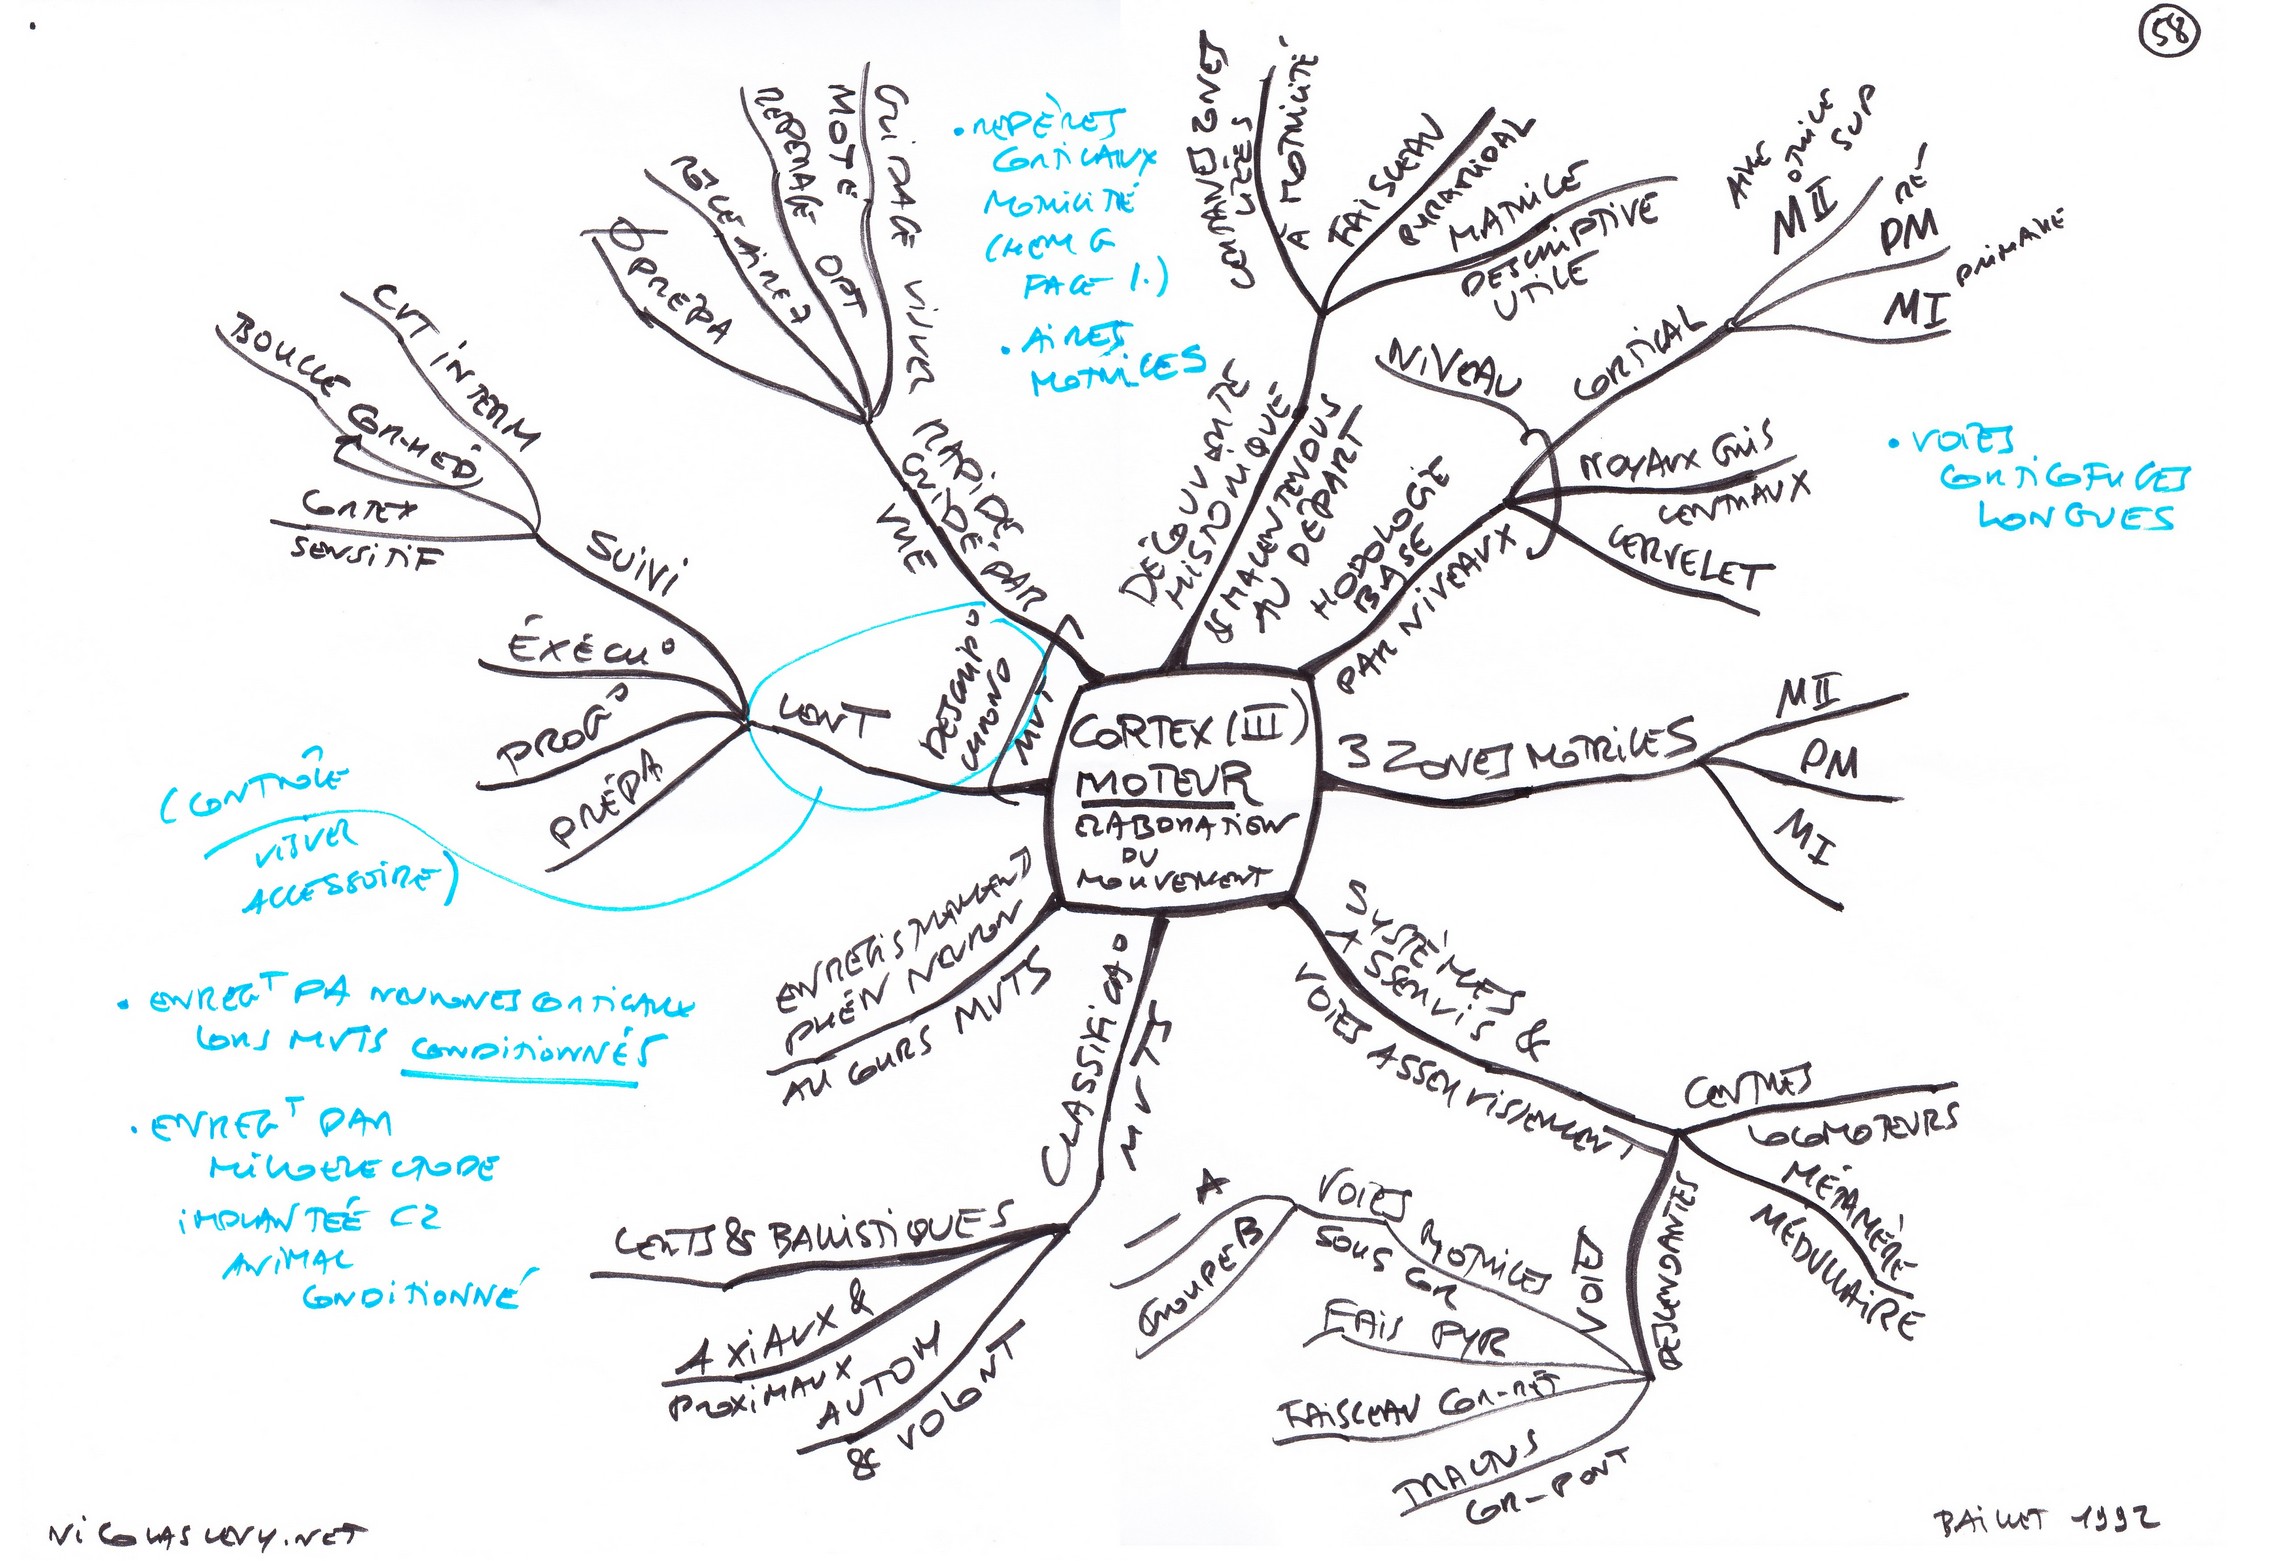 58
CORTEX (III)
MOTEUR
ELABORATION
DU
MOUVEMENT
DÉCOUVERTE
HISTORIQUE
& MALENTENDUS
AU DÉPART
CERTAINES ZONES
LIÉES
À MOTRICITÉ
FAISCEAU
PYRAMIDAL
MATRICE
DESCRIPTIVE
UTILE
HODOLOGIE
BASE
PAR NIVEAUX
NIVEAU
CORTICAL
MII
AIRE
MOTRICE
SUP
PM
RÉ
MI
PRIMAIRE
NOYAUX GRIS
CENTRAUX
CERVELET
• VOIES
CORTICOFUGES
LONGUES
3 ZONES MOTRICES
MII
PM
MI
SYSTÈMES
ASSERVIS &
VOIES ASSERVISSEMENT
CENTRES
LOCOMOTEURS
MÉTAMÈRE
MÉDULLAIRE
VOIES
DESCENDANTES
VOIES MOTRICES
SOUS COR
A
GROUPE B
FAIS PYR
FAISCEAU COR-RÉT
TRACTUS
COR-PONT
CLASSIFICA°
MVTS
LENTS & BALLISTIQUES
AXIAUX &
PROXIMAUX
AUTOM
& VOLONT
ENREGISTREMENT
PHÉN NEURON
AU COURS MVTS
• ENREGT PA NEURONES CORTICAUX
LORS MVTS CONDITIONNÉS
• ENREGT PAR
MICROELECTRODE
IMPLANTEÉ CZ
ANIMAL
CONDITIONNÉ
DESCRIP°
CHRONO
MVT
LENT
SUIVI
CVT INTERM
BOUCLE COR-MED
CORTEX
SENSITIF
ÉXÉCU°
PROG°
PRÉPA
(CONTRÔLE
VISUEL
ACCESSOIRE)
RAPIDE,
GUIDÉ PAR
VUE
PREPA
RÔLE AIRE 7
REPERAGE OPT
MOTÉ
GUIDAGE VISUEL
• REPÈRES
CORTICAUX
MOTRICITÉ
(HEM G
FACE 1.)
• AIRES
MOTRICES
NICOLASLEVY.NET
BAILLET 1992